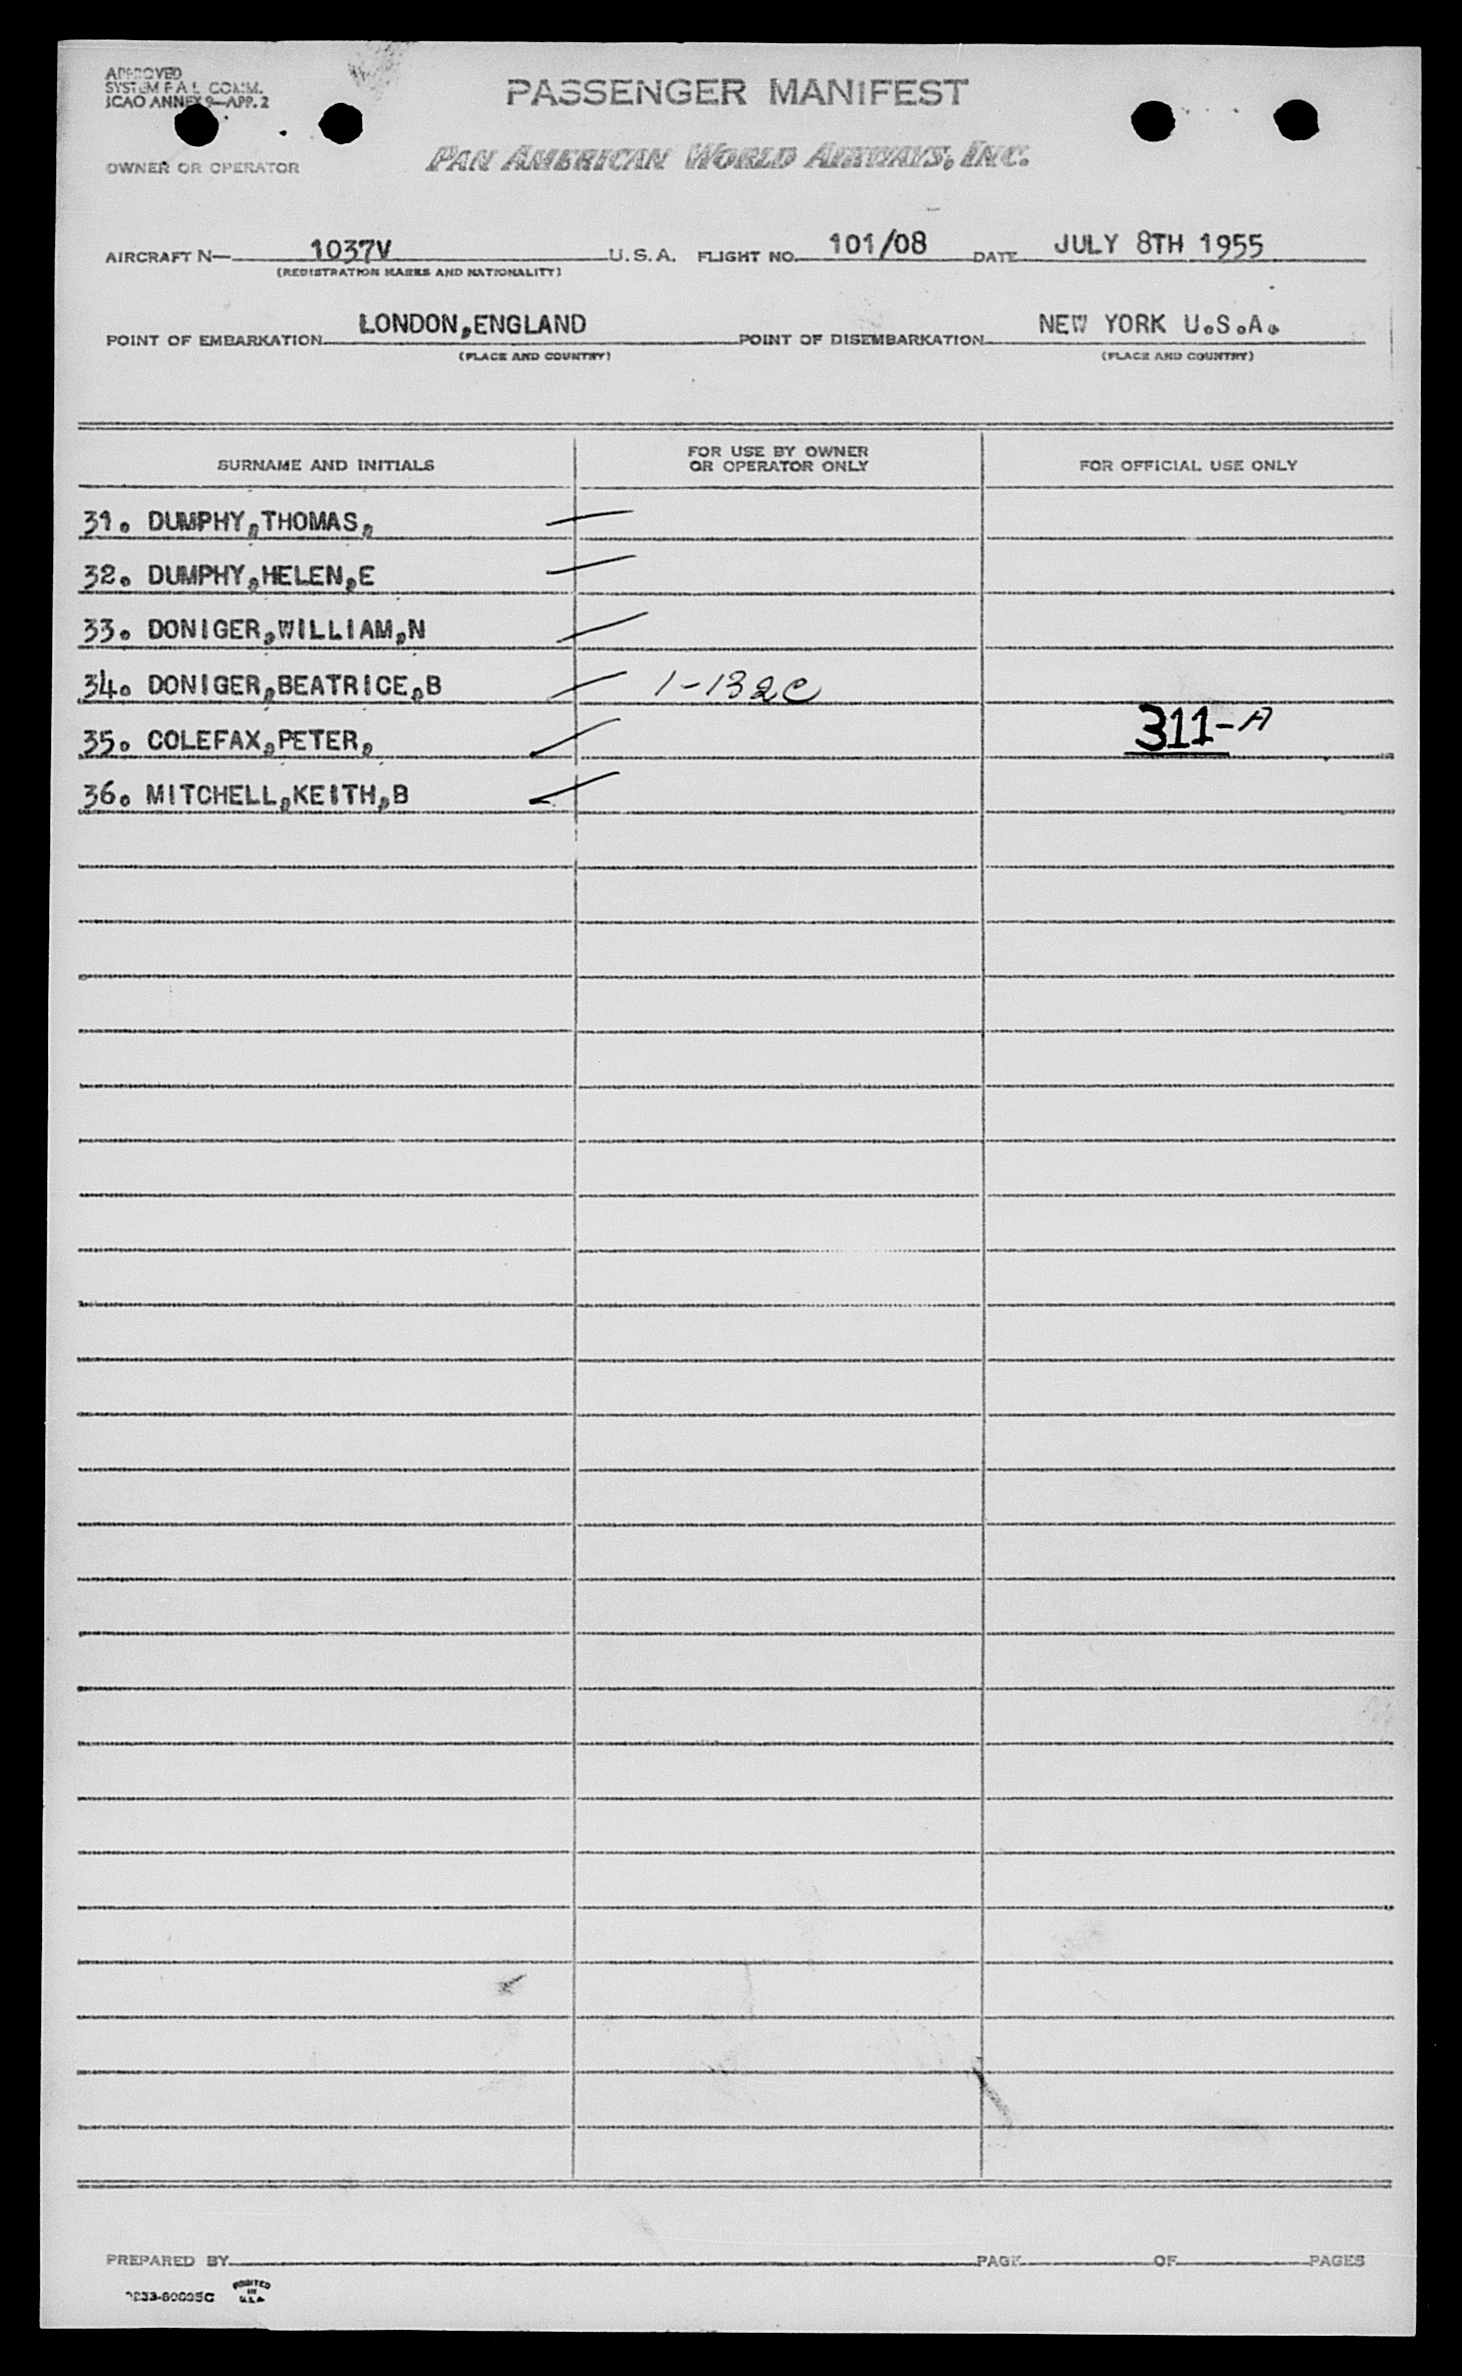 APPROVED
SYSTEM F A L COMM.
ICAO ANNEX 9—APP. 2
PASSENGER MANIFEST
OWNER OR OPERATOR
PAN AMERICAN WORLD AIRWAYS, INC.
AIRCRAFT N— 1037V U.S.A. FLIGHT NO. 101/08 DATE JULY 8TH 1955
(REGISTRATION MARKS AND NATIONALITY)
POINT OF EMBARKATION LONDON,ENGLAND POINT OF DISEMBARKATION NEW YORK U.S.A.
(PLACE AND COUNTRY) (PLACE AND COUNTRY)
SURNAME AND INITIALS FOR USE BY OWNER OR OPERATOR ONLY FOR OFFICIAL USE ONLY
31. DUMPHY,THOMAS,
32. DUMPHY,HELEN,E
33. DONIGER,WILLIAM,N
34. DONIGER,BEATRICE,B 1-132C
35. COLEFAX,PETER, 311-A
36. MITCHELL,KEITH,B
PREPARED BY PAGE OF PAGES
PRINTED
IN
U.S.A.